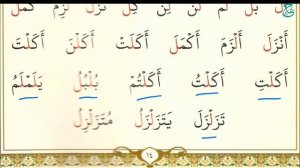 بَل لَم لَن لِن كِل نَزَلَ لَزِمَ كَمُلَ
أَنْزَلَ أَلْزَمَ أَكْمَلَ أَكَلَتْ أَكَلْنَ أَكَلْتَ
أَكَلْتِ أَكَلْتُ أَكَلْتُمْ بُلْبُلُ يَلَمْلَمُ
تَزَلْزَلَ يَتَزَلْزَلُ مُتَزَلْزِلُ
١٤